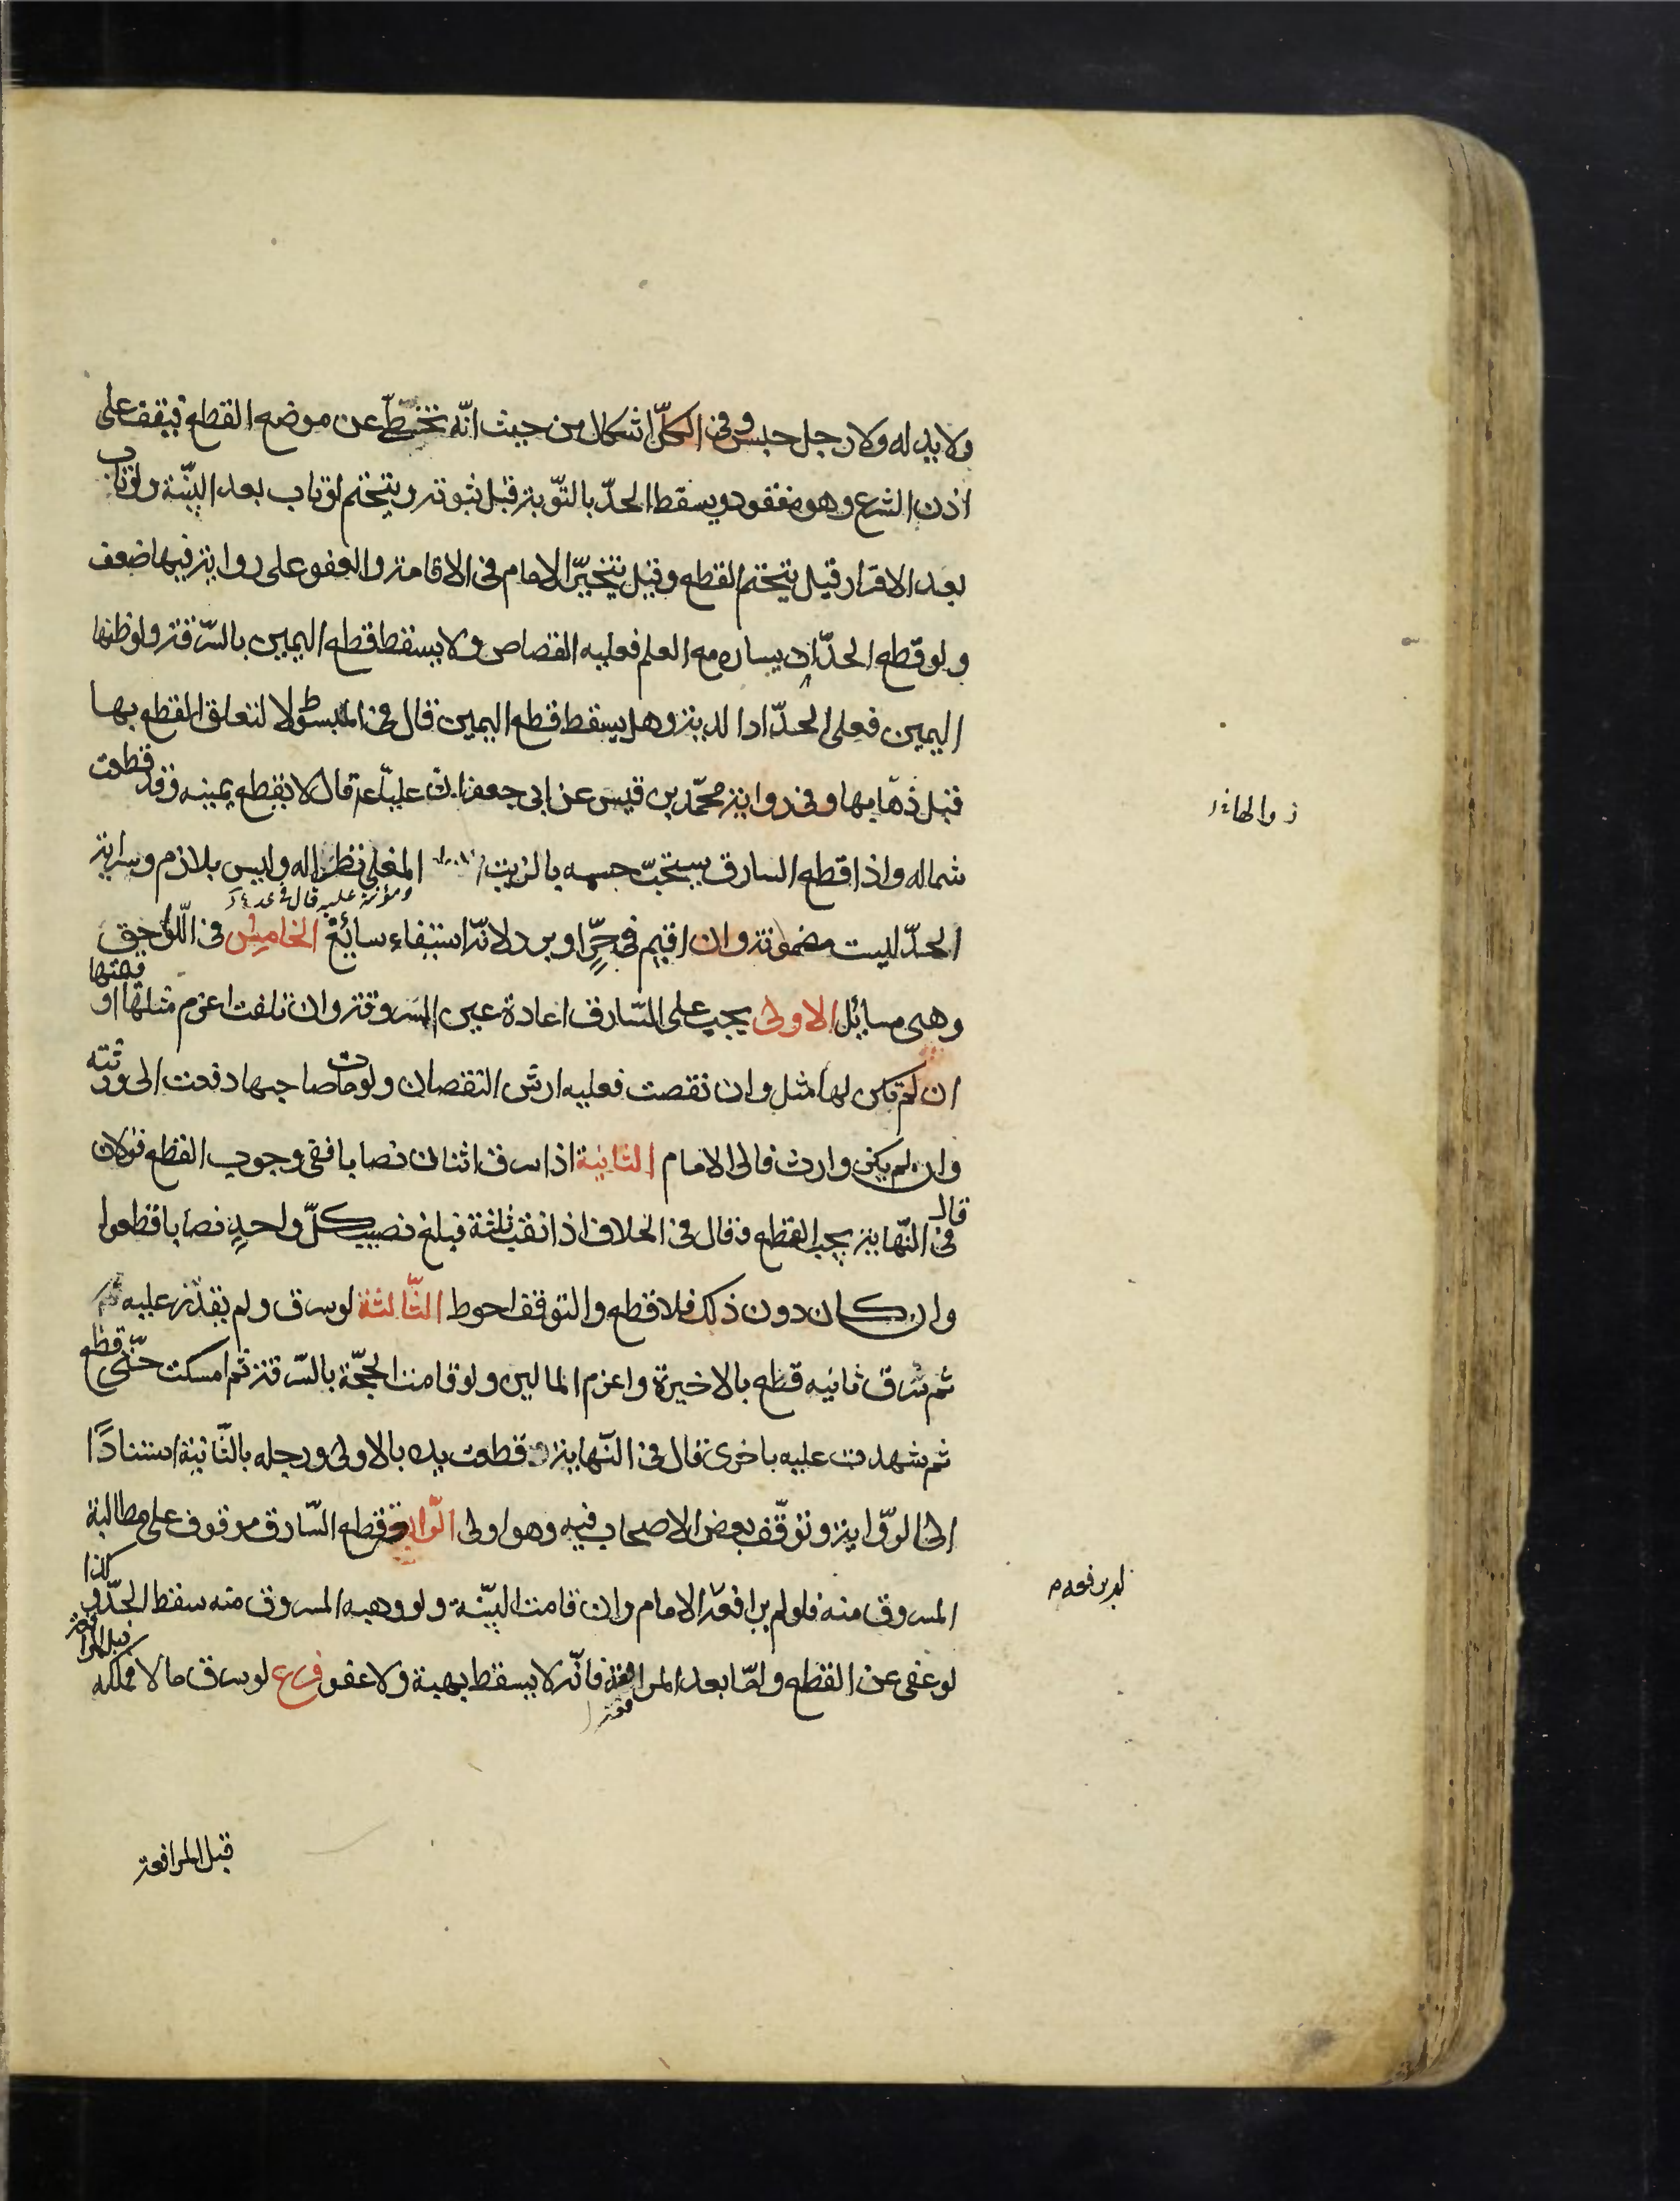 ولا يد له ولا رجل حبس وفي الكلّ اشكال من حيث انّه تخطّ عن موضع القطع فيقف على
اذن الشرع وهو مفقود ويسقط الحدّ بالتّوبة قبل ثبوته ويتحتم لو تاب بعد البيّنة ولو تاب
بعد الاقرار قيل يتحتم القطع وقيل يتخيّر الامام في الاقامة والعفو على رواية فيها ضعف
ولو قطع الحدّاد يساره مع العلم فعليه القصاص ولا يسقط قطع اليمين بالسّرقة ولو ظنها
اليمين فعلى الحدّاد الدية وهل يسقط قطع اليمين قال في المبسوط لا لتعلق القطع بها
قبل ذهابها وفي رواية محمّد بن قيس عن ابي جعفر ان عليّا ع قال لا يقطع يمينه وقد قطعت
شماله واذا قطع السارق يستحبّ حسمه بالزيت المغلي نظرا له وليس بلازم وسراية
ومؤنته عليه قال في
الحدّ ليست مضمونة وان اقيم في حرّ او برد لانّه استيفاء سائغ الخامس في اللواحق
وهى مسائل الاولى يجب على السّارق اعادة عين المسروقة وان تلفت اغرم مثلها او قيمتها
ان لم تكن لها مثل وان نقصت فعليه ارش النقصان ولو مات صاحبها دفعت الى ورثته
وان لم يكن وارث فالى الامام الثانية اذا سرق اثنان نصابا ففي وجوب القطع قولان
قال في النّهاية يجب القطع وقال في الخلاف اذا نقب ثلثة فبلغ نصيب كلّ واحدٍ نصابا قطعوا
وان كان دون ذلك فلا قطع والتوقف احوط الثّالثة لو سرق ولم يقدر عليه
ثم سرق ثانيه قطع بالاخيرة واغرم المالين ولو قامت الحجّة بالسّرقة ثم امسكت حتّى قطع
ثم شهدت عليه باخرى قال في النّهاية قطعت يده بالاولى ورجله بالثّانية استنادًا
الى الرّواية وتوقّف بعض الاصحاب فيه وهو اولى الرّابعة قطع السّارق موقوف على مطالبة
المسروق منه فلو لم يرافعه الامام وان قامت البيّنة ولو وهبه المسروق منه سقط الحدّ وكذا
لو عفى عن القطع وامّا بعد المرافعة فانّه لا يسقط بهبة ولا عفو فرع لو سرق مالا فملكه قبل المرافعة
قبل المرافعة